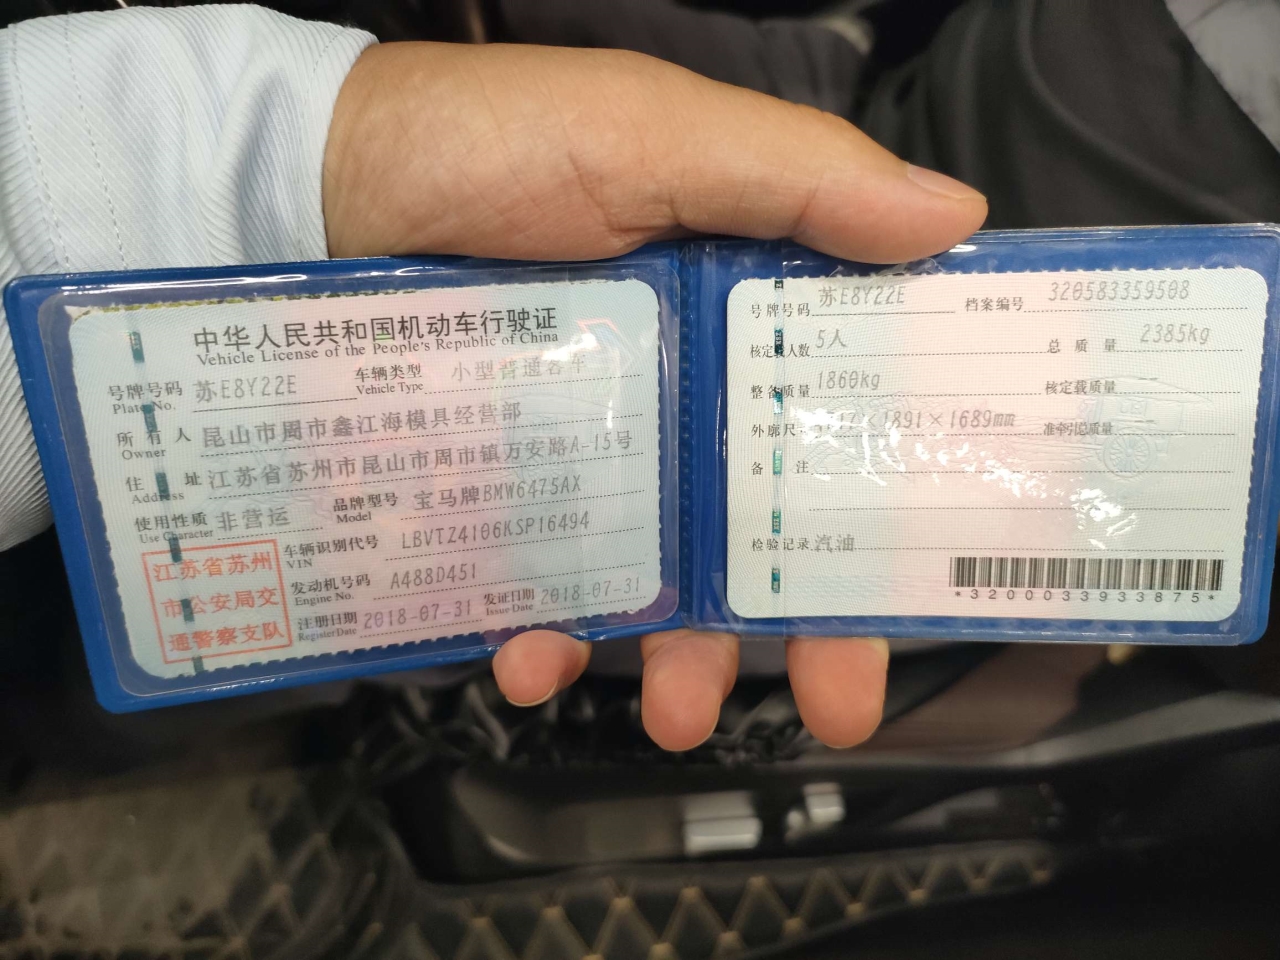 中华人民共和国机动车行驶证
Vehicle License of the People's Republic of China
号牌号码 苏E8Y22E 车辆类型 小型普通客车
Plate No. Vehicle Type
所有人 昆山市周市鑫江海模具经营部
Owner
住址 江苏省苏州市昆山市周市镇万安路A-15号
Address
使用性质 非营运 品牌型号 宝马牌BMW6475AX
Use Character Model
车辆识别代号 LBVTZ4106KSP16494
VIN
发动机号码 A488D451
Engine No.
注册日期 2018-07-31 发证日期 2018-07-31
Register Date Issue Date
江苏省苏州
市公安局交
通警察支队
号牌号码 苏E8Y22E 档案编号 320583359508
核定载人数 5人 总质量 2385kg
整备质量 1860kg 核定载质量
外廓尺 ×1891×1689mm 准牵引总质量
备注
检验记录 汽油
*3200033933875*